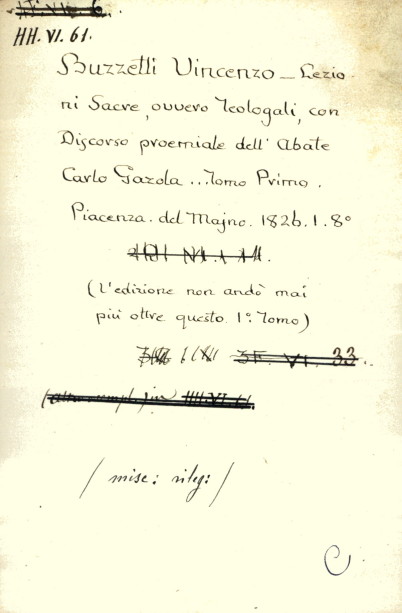 HH. VI. 61.
Buzzetti Vincenzo _ Lezio-
ni Sacre, ovvero Teologali, con
Discorso proemiale dell' Abate
Carlo Gazola ... Tomo Primo.
Piacenza. del Majno. 1826. 1. 8°
(L'edizione non andò mai
più oltre questo 1°: Tomo)
3F. VI. 33.
HH. VI. 61.
/ misc: rileg: /
C